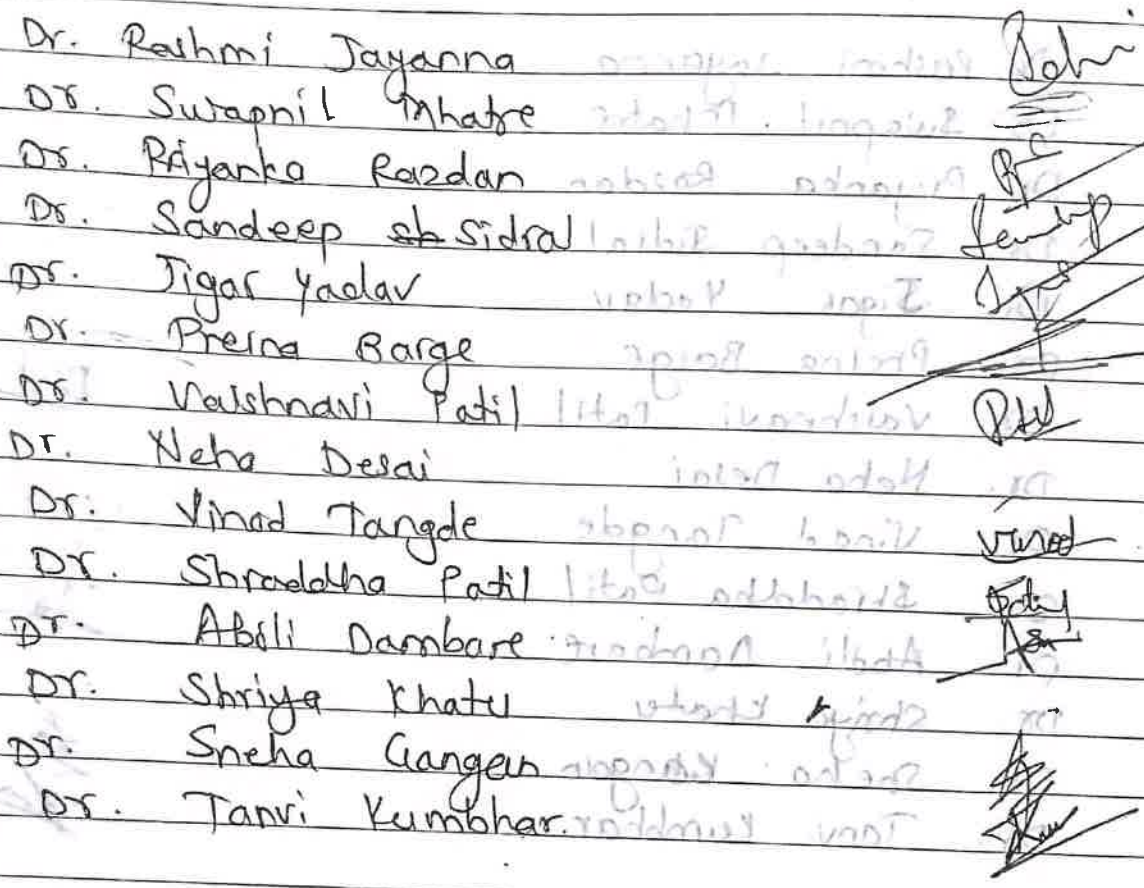 Dr. Rashmi Jayanna
Dr. Swapnil Mhatre
Dr. Priyanka Razdan
Dr. Sandeep Sidral
Dr. Jigar Yadav
Dr. Prerna Barge
Dr. Vaishnavi Patil
Dr. Neha Desai
Dr. Vinod Tangde vinod
Dr. Shraddha Patil
Dr. Aboli Dambare
Dr. Shriya Khatu
Dr. Sneha Gangan
Dr. Tanvi Kumbhar.